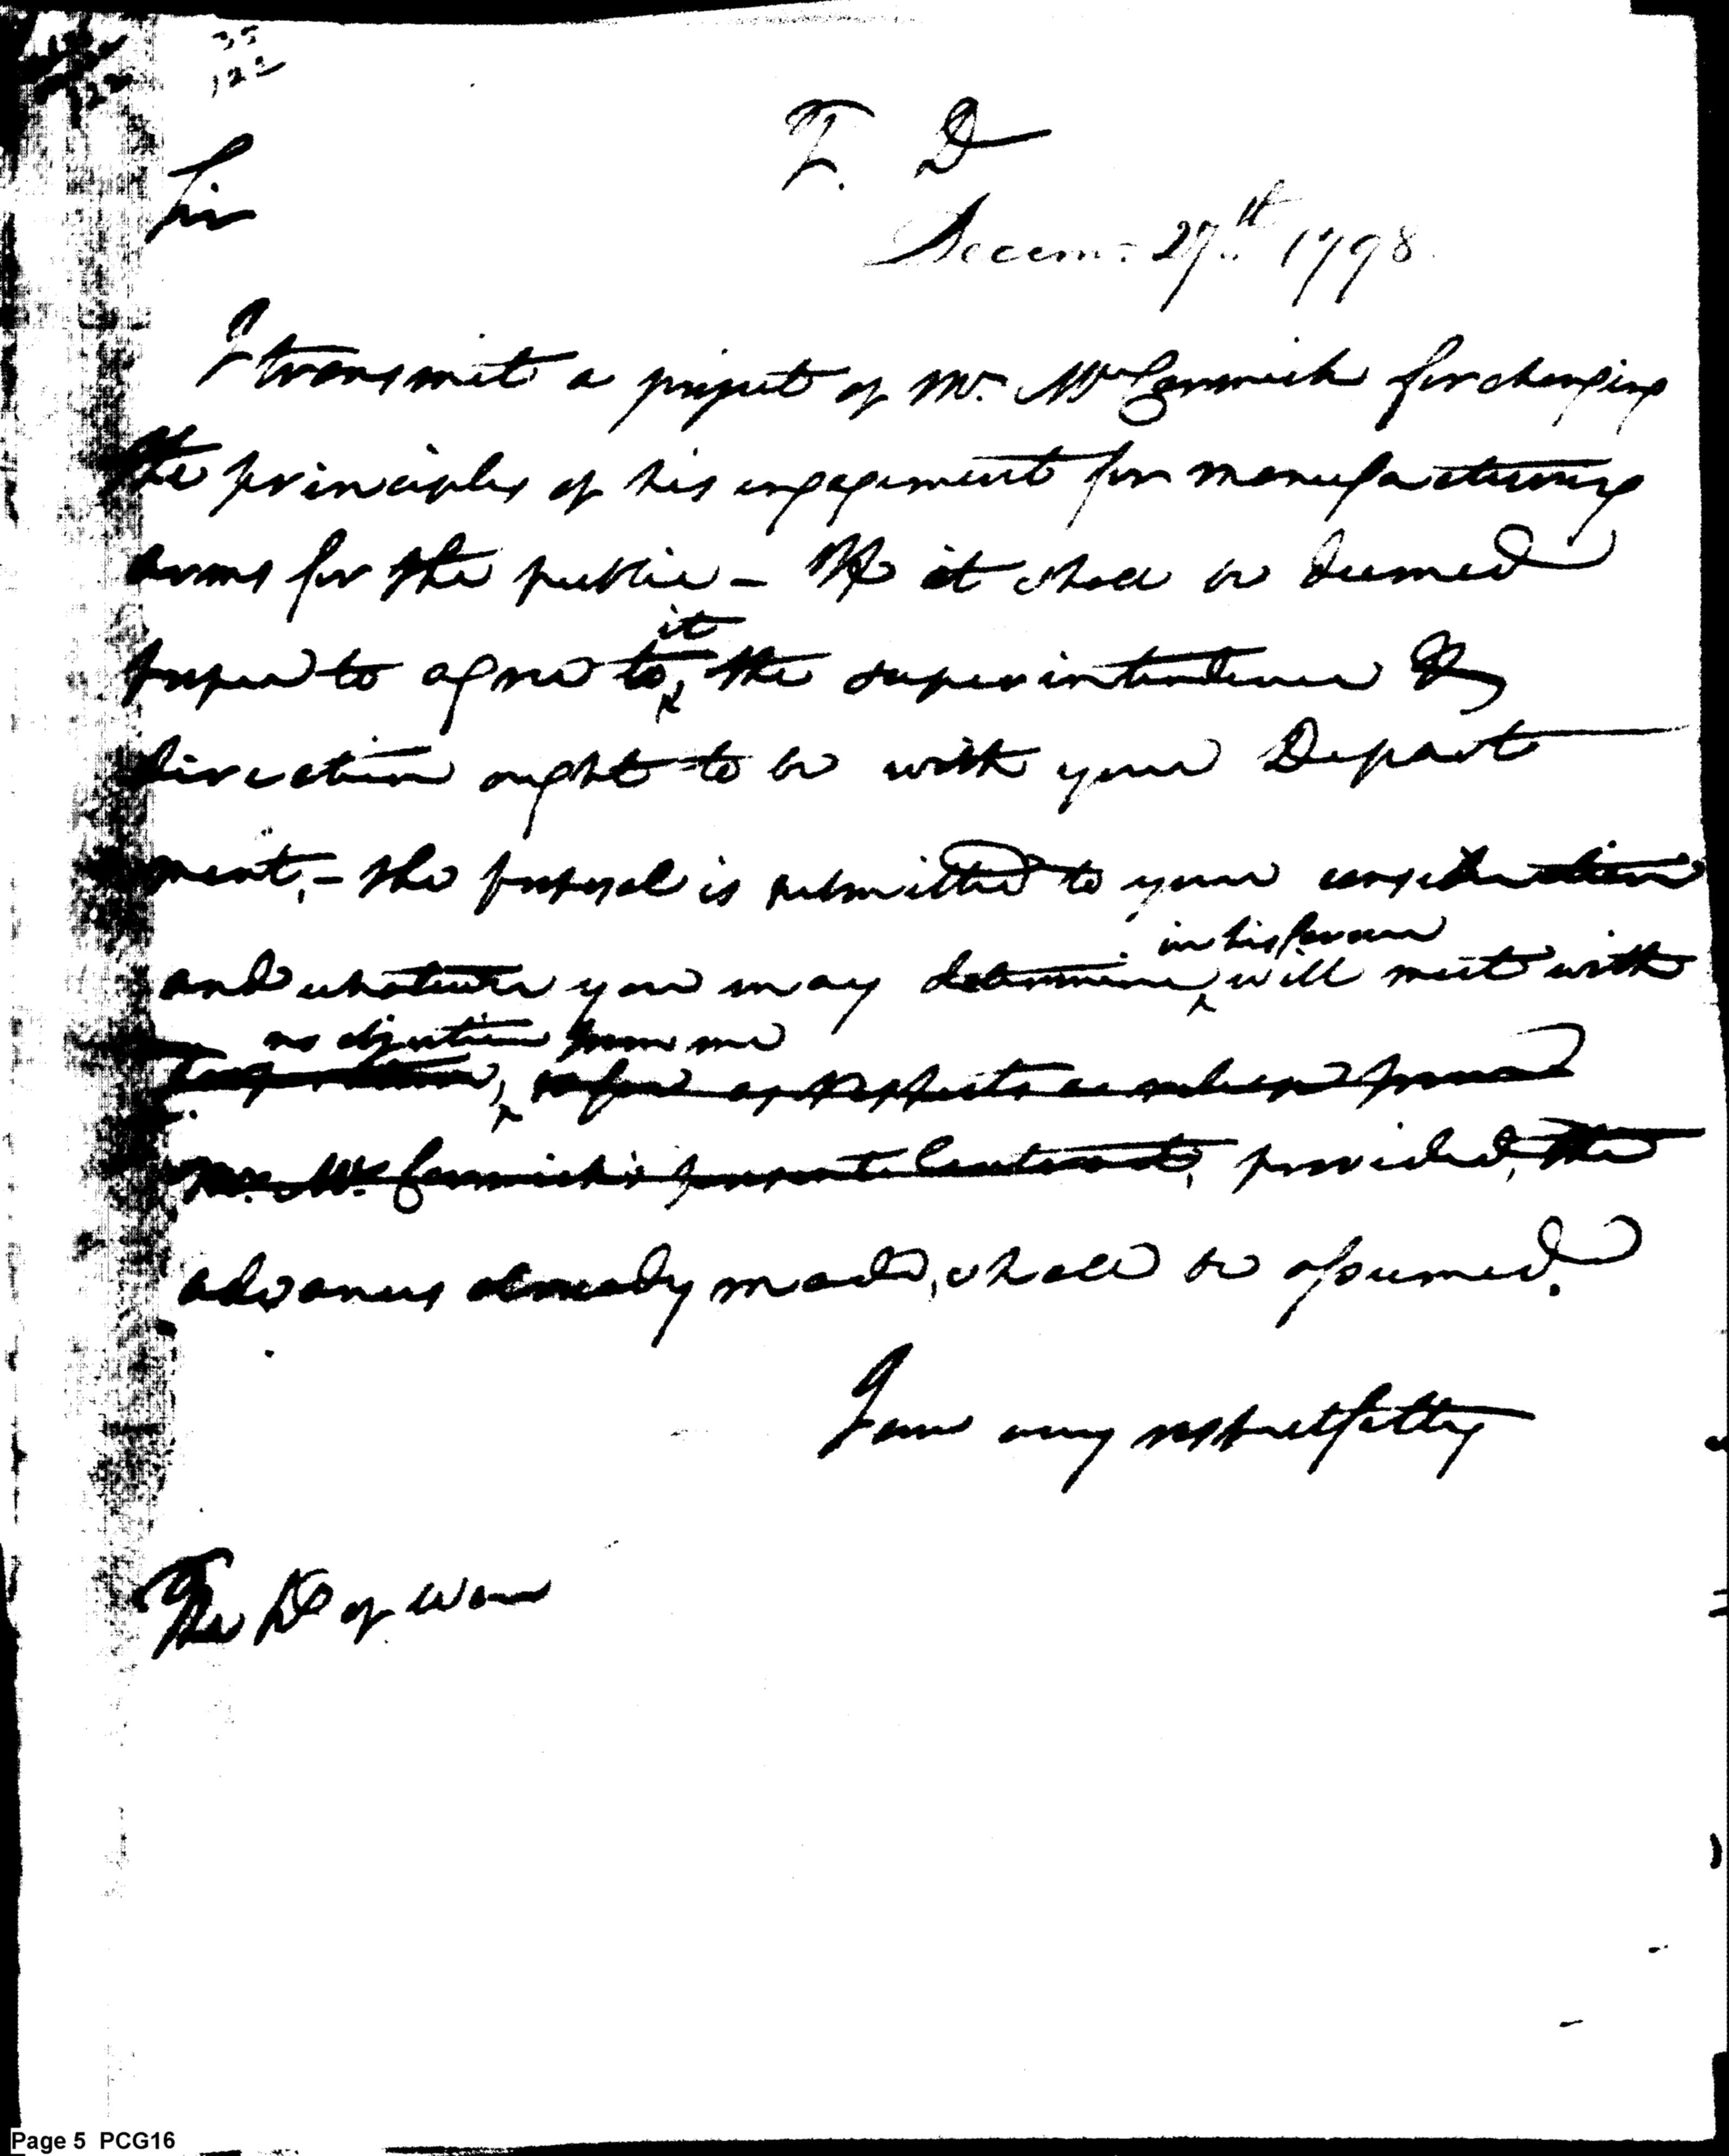 35
122
T. D
Sir
Decem:  27th 1798
I transmit a project of Mr. McCormick for changing
the principles of his engagement for manufacturing
arms for the public - If it shall be deemed
it
proper to agree to the superintendence &
direction ought to be with your Depart
ment, - the proposal is submitted to your consideration
in his favour
and whatever you may determine will meet with
no objection from me
so far as respects a release from
Mr. McCormick's present Contract, provided, the
advances already made, shall be assumed.
I am very respectfully
The S of War
Page 5 PCG16